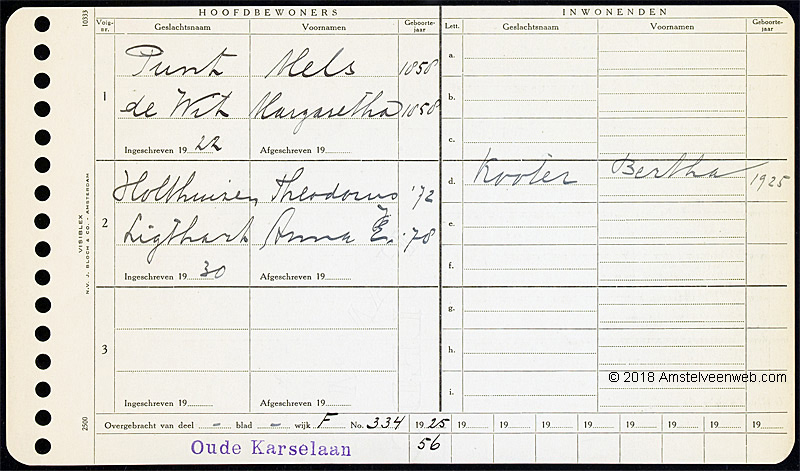 HOOFDBEWONERS
INWONENDEN
Volg-nr.
Geslachtsnaam
Voornamen
Geboorte-jaar
Lett.
Geslachtsnaam
Voornamen
Geboorte-jaar
1
Punt Mels 1858
de Wit Margaretha 1858
Ingeschreven 19 22 Afgeschreven 19
2
Holthuizen Theodorus '72
Ligthart Anna E. '78
Ingeschreven 19 30 Afgeschreven 19
3
Ingeschreven 19 Afgeschreven 19
a.
b.
c.
d. Kooter Bertha 1925
e.
f.
g.
h.
i.
© 2018 Amstelveenweb.com
Overgebracht van deel - blad - wijk F No. 334 19 25 19 19 19 19 19 19 19 19
Oude Karselaan 56
10333
VISIBLEX
N.V. J. BLOCH & CO. - AMSTERDAM
2500